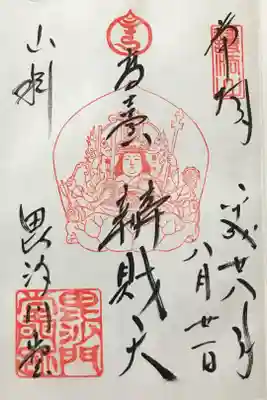 奉拝
平成廿八年
八月廿一日
高臺辨財天
山科
毘沙門堂
毘沙門